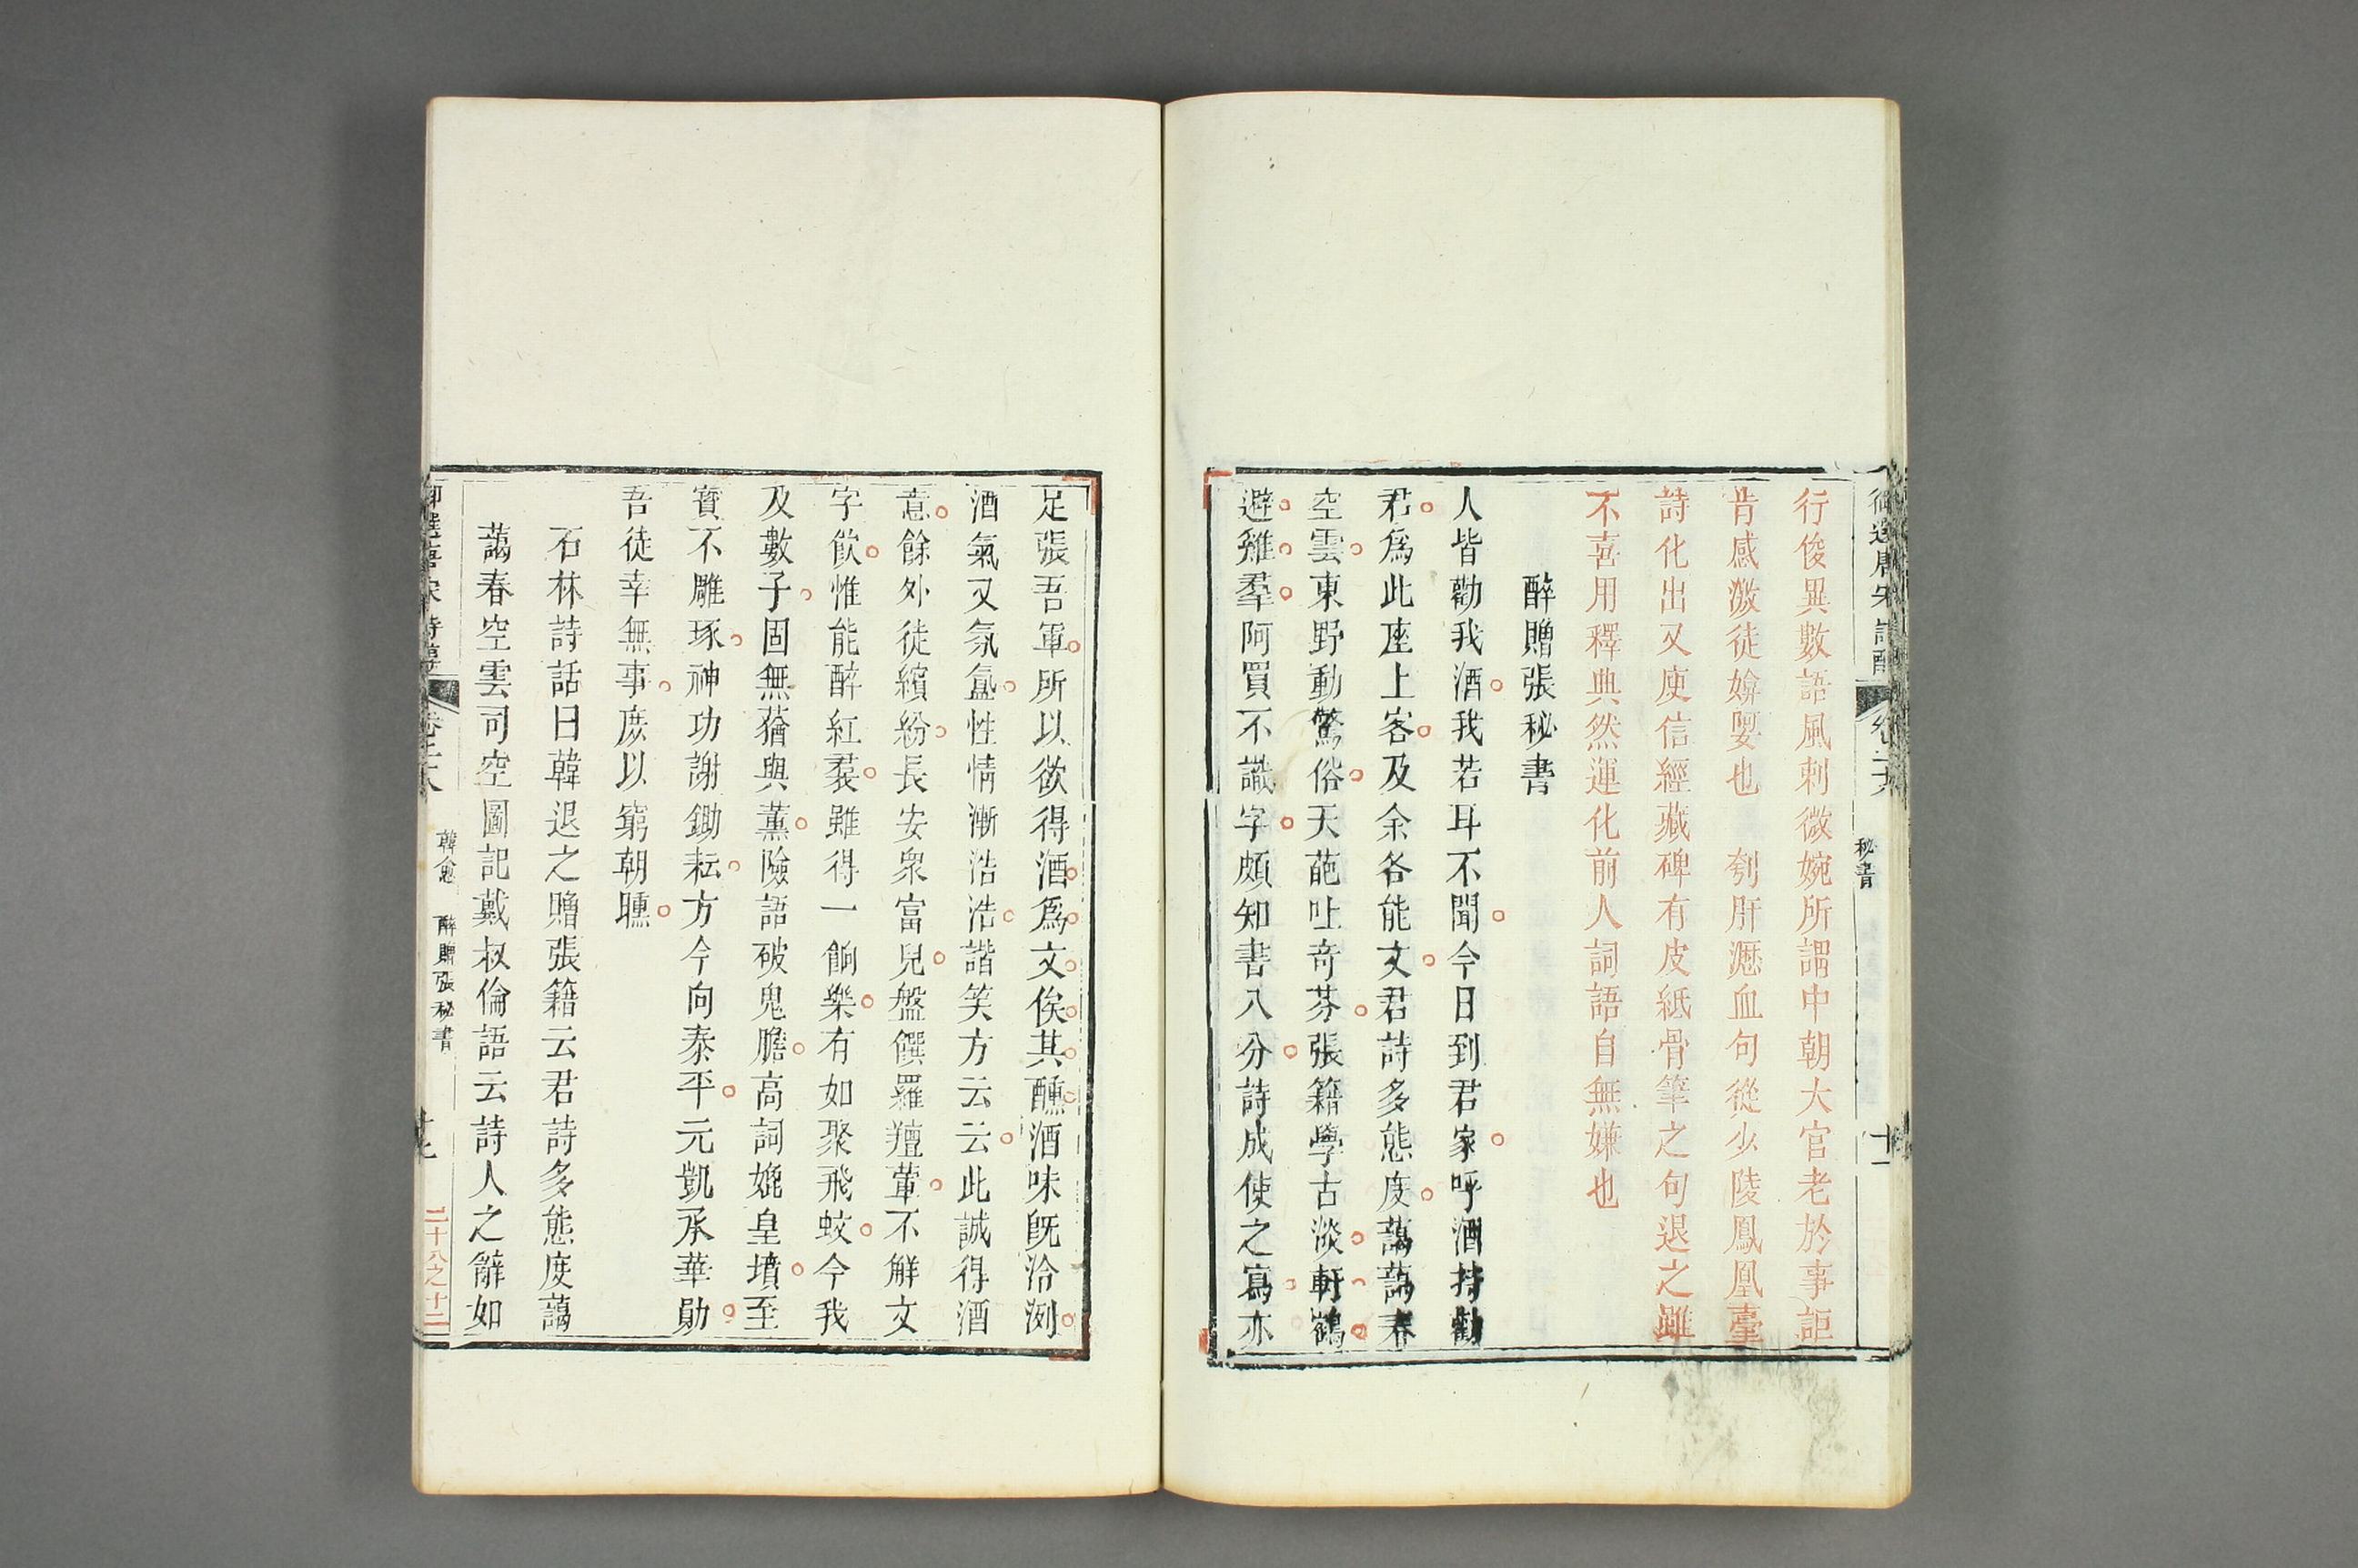 御選唐宋詩醇
卷二十八
秘書
十一
行俊異數語風刺微婉所謂中朝大官老於事詎
肯感激徒媕娿也 刳肝瀝血句從少陵鳳凰臺
詩化出又庾信經藏碑有皮紙骨筆之句退之雖
不喜用釋典然運化前人詞語自無嫌也
醉贈張秘書
人皆勸我酒我若耳不聞今日到君家呼酒持勸
君爲此座上客及余各能文君詩多態度藹藹春
空雲東野動驚俗天葩吐奇芬張籍學古淡軒鶴
避雞羣阿買不識字頗知書八分詩成使之寫亦
足張吾軍所以欲得酒爲文俟其醺酒味旣冷洌
酒氣又氛氳性情漸浩浩諧笑方云云此誠得酒
意餘外徒繽紛長安衆富兒盤饌羅羶葷不解文
字飮惟能醉紅裠雖得一餉樂有如聚飛蚊今我
及數子固無蕕與薰險語破鬼膽高詞媲皇墳至
寶不雕琢神功謝鋤耘方今向泰平元凱承華勛
吾徒幸無事庶以窮朝曛
石林詩話曰韓退之贈張籍云君詩多態度藹
藹春空雲司空圖記戴叔倫語云詩人之辭如
御選唐宋詩醇
卷二十八
韓愈 醉贈張秘書
二十八之十二